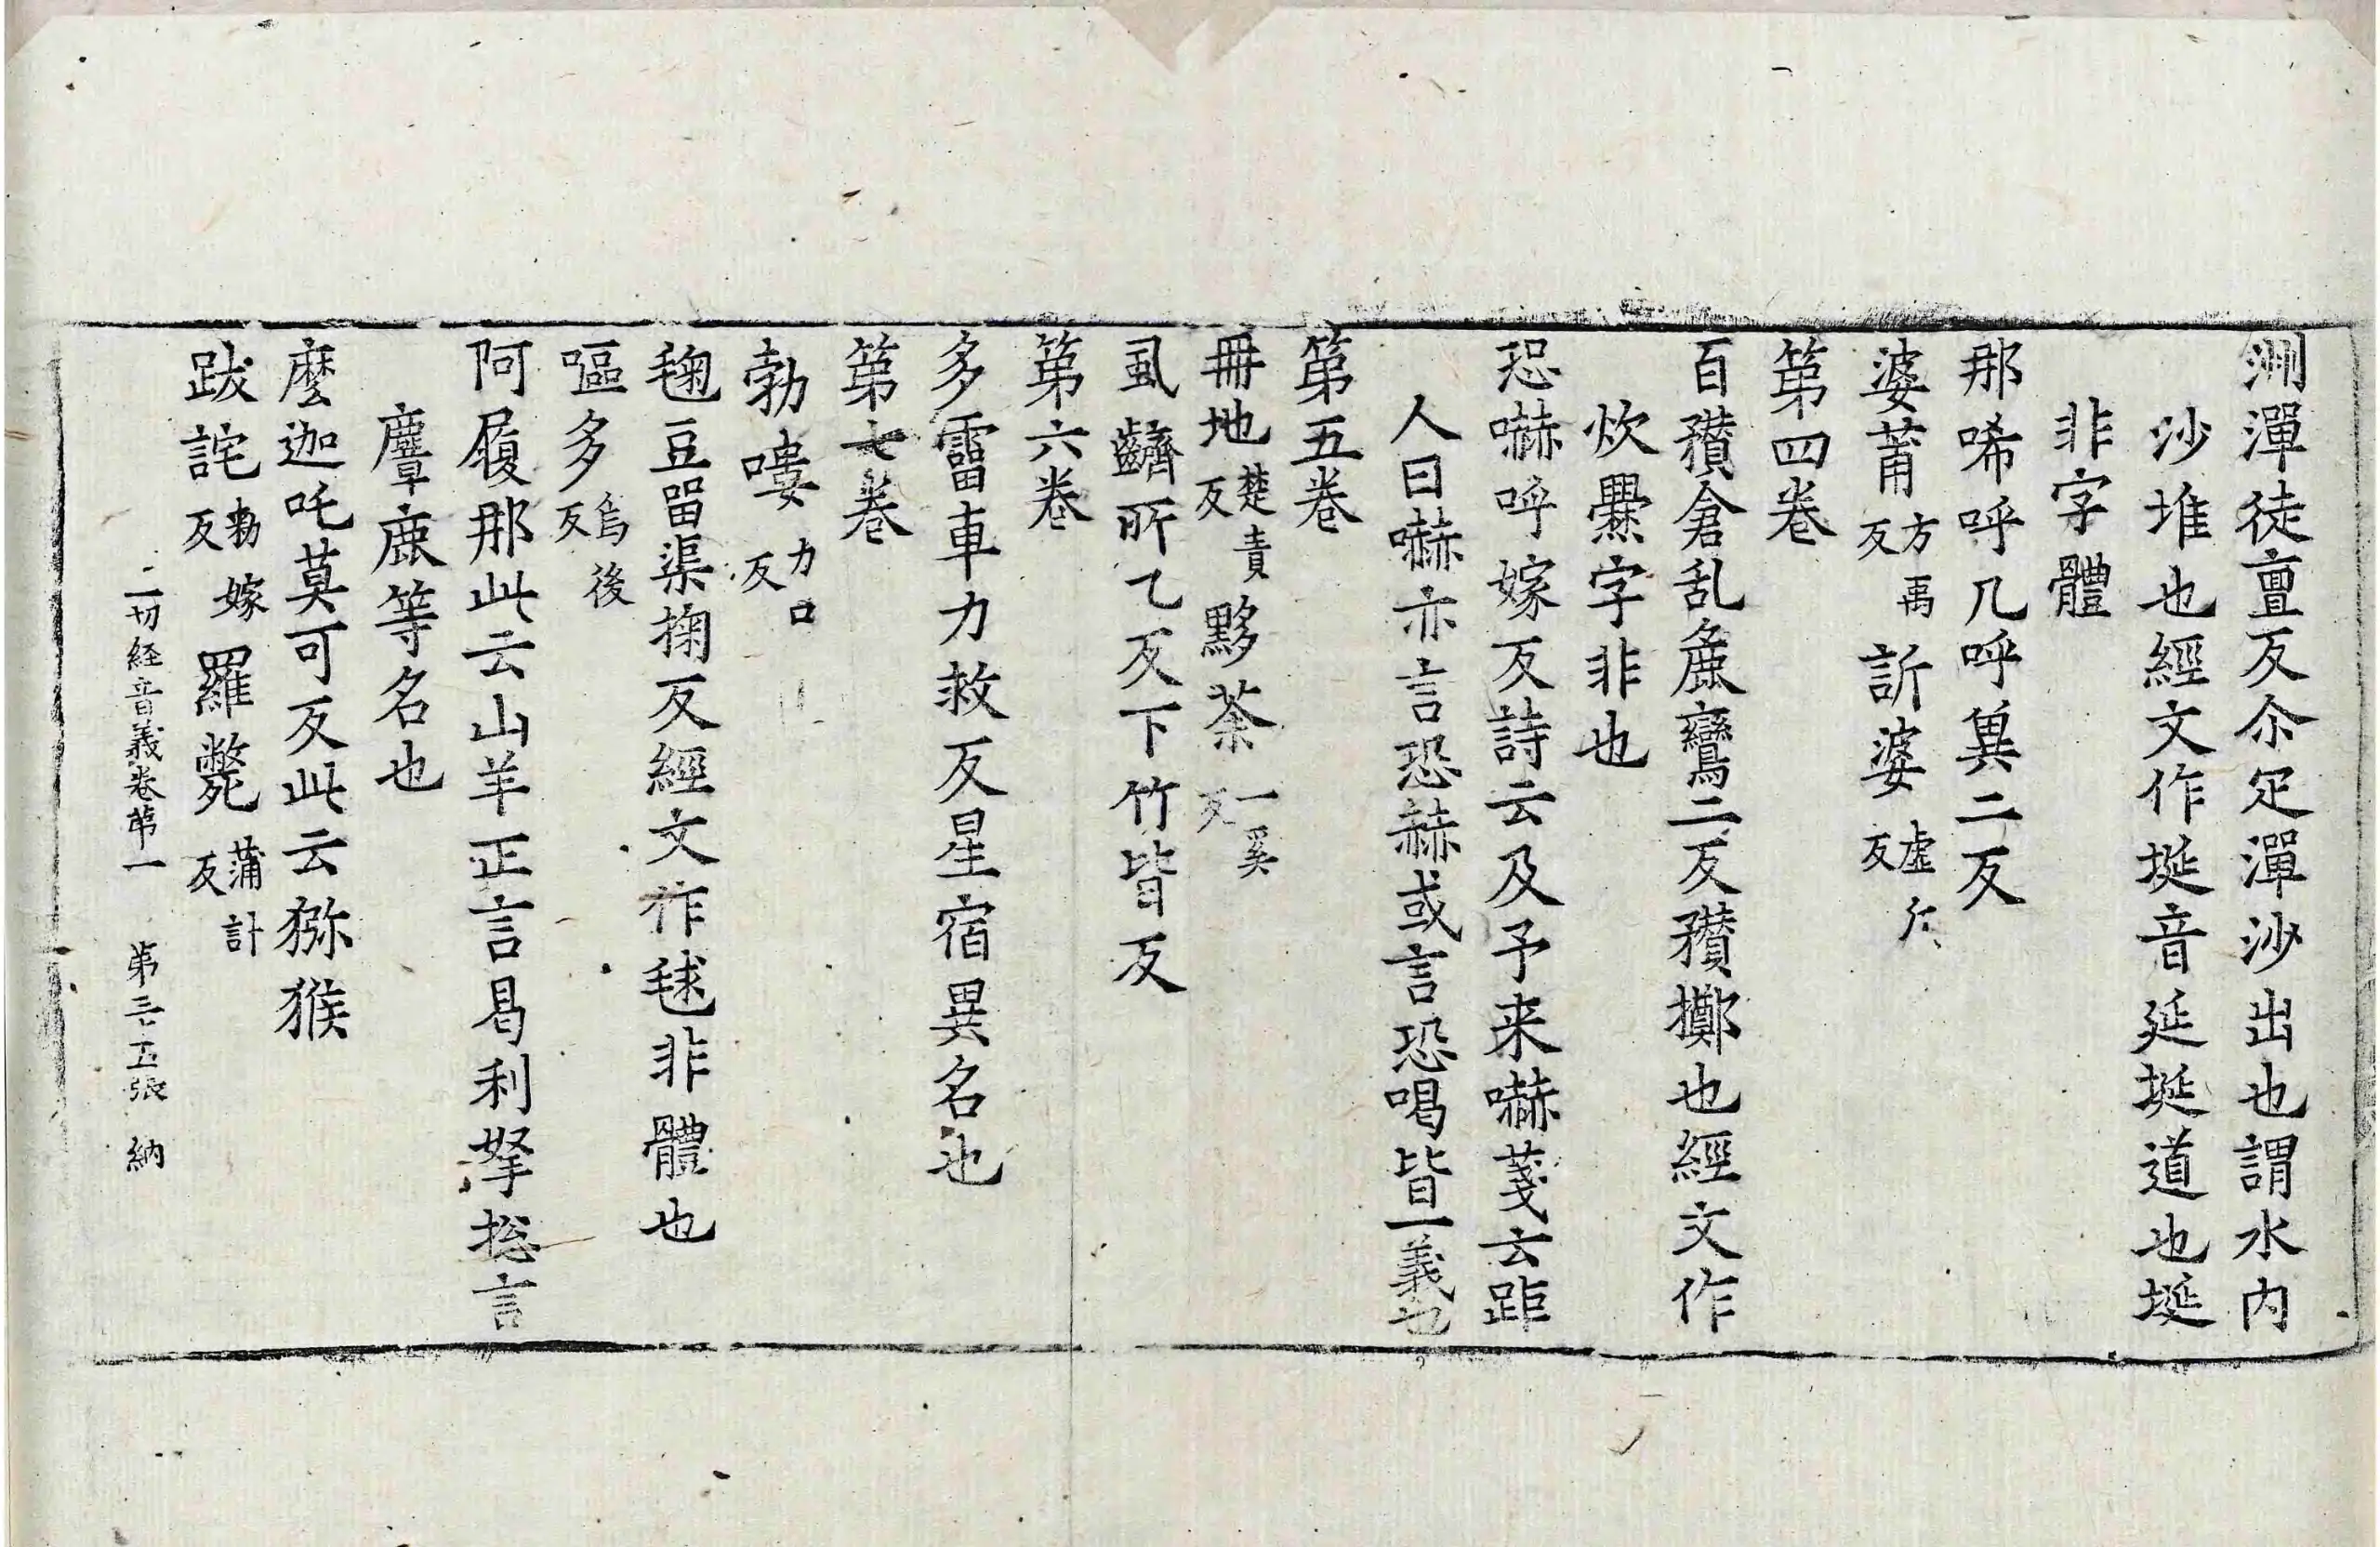 洲潬徒亶反尒疋潬沙出也謂水内
沙堆也經文作埏音延埏道也埏
非字體
那唏呼几呼兾二反
婆莆方禹反訢婆虛斤反
第四卷
百穳倉乱麁鸞二反穳擲也經文作
炊爨字非也
恐嚇呼嫁反詩云及予来嚇䇳云距
人曰嚇亦言恐赫或言恐喝皆一義也
第五卷
冊地楚責反黟荼一奚反
虱齌所乙反下竹皆反
第六卷
多霤車力救反星宿異名也
第七卷
勃嘍力口反
毱豆留渠掬反經文作毬非體也
嘔多烏後反
阿履那此云山羊正言曷利拏捴言
麞鹿等名也
麽迦吒莫可反此云猕猴
跋詫勑嫁反羅斃蒲計反
一切経音義卷苐一 第三十五張 納